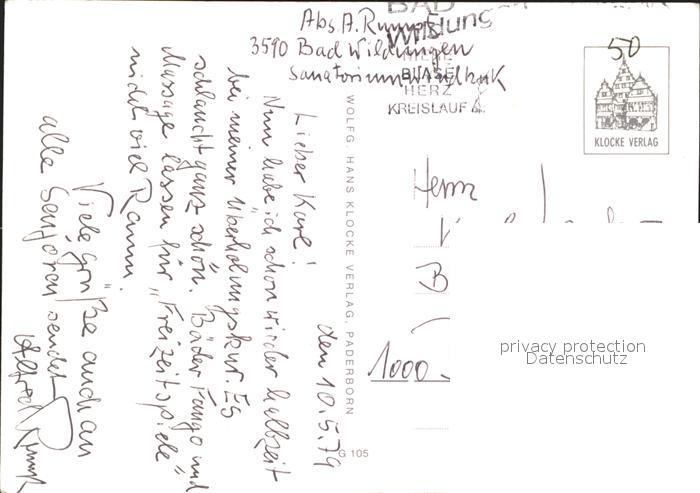 Abs. A. Rumpf
3590 Bad Wildungen
Sanatorium Wandbuk
BAD
Wildung
NIERE
BLASE
HERZ
KREISLAUF
50
KLOCKE VERLAG
den 10.5.79
Lieber Karl!
Nun habe ich schon wieder halbzeit
bei meiner Überholungskur. Es
schlaucht ganz schön. Bäder Fango und
Massage lassen für "Freizeitspiele"
nicht viel Raum.
Viele Grüße auch an
alle Senioren sendet
Alfred Rumpf
WOLFG. HANS KLOCKE VERLAG, PADERBORN
G 105
Herrn
B
1000
privacy protection
Datenschutz